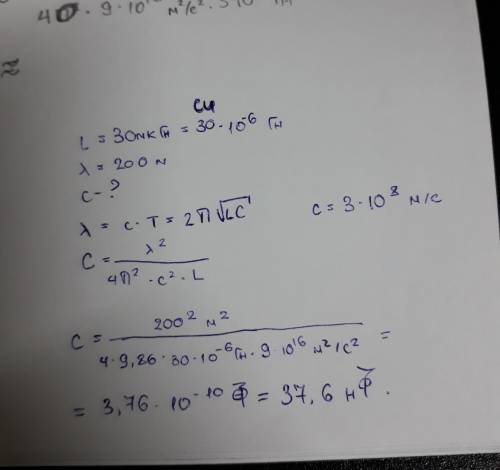 40 · 9 · 10 м²/с² ·
≈
СИ
L = 30мкГн = 30 · 10⁻⁶ Гн
λ = 200 м
c - ?
λ = c · T = 2π√LC c = 3 · 10⁸ м/с
C = λ² / 4π² · c² · L
C = 200² м² / 4 · 9,86 · 30 · 10⁻⁶ Гн · 9 · 10¹⁶ м²/с² =
= 3,76 · 10⁻¹⁰ Ф = 37,6 нФ.